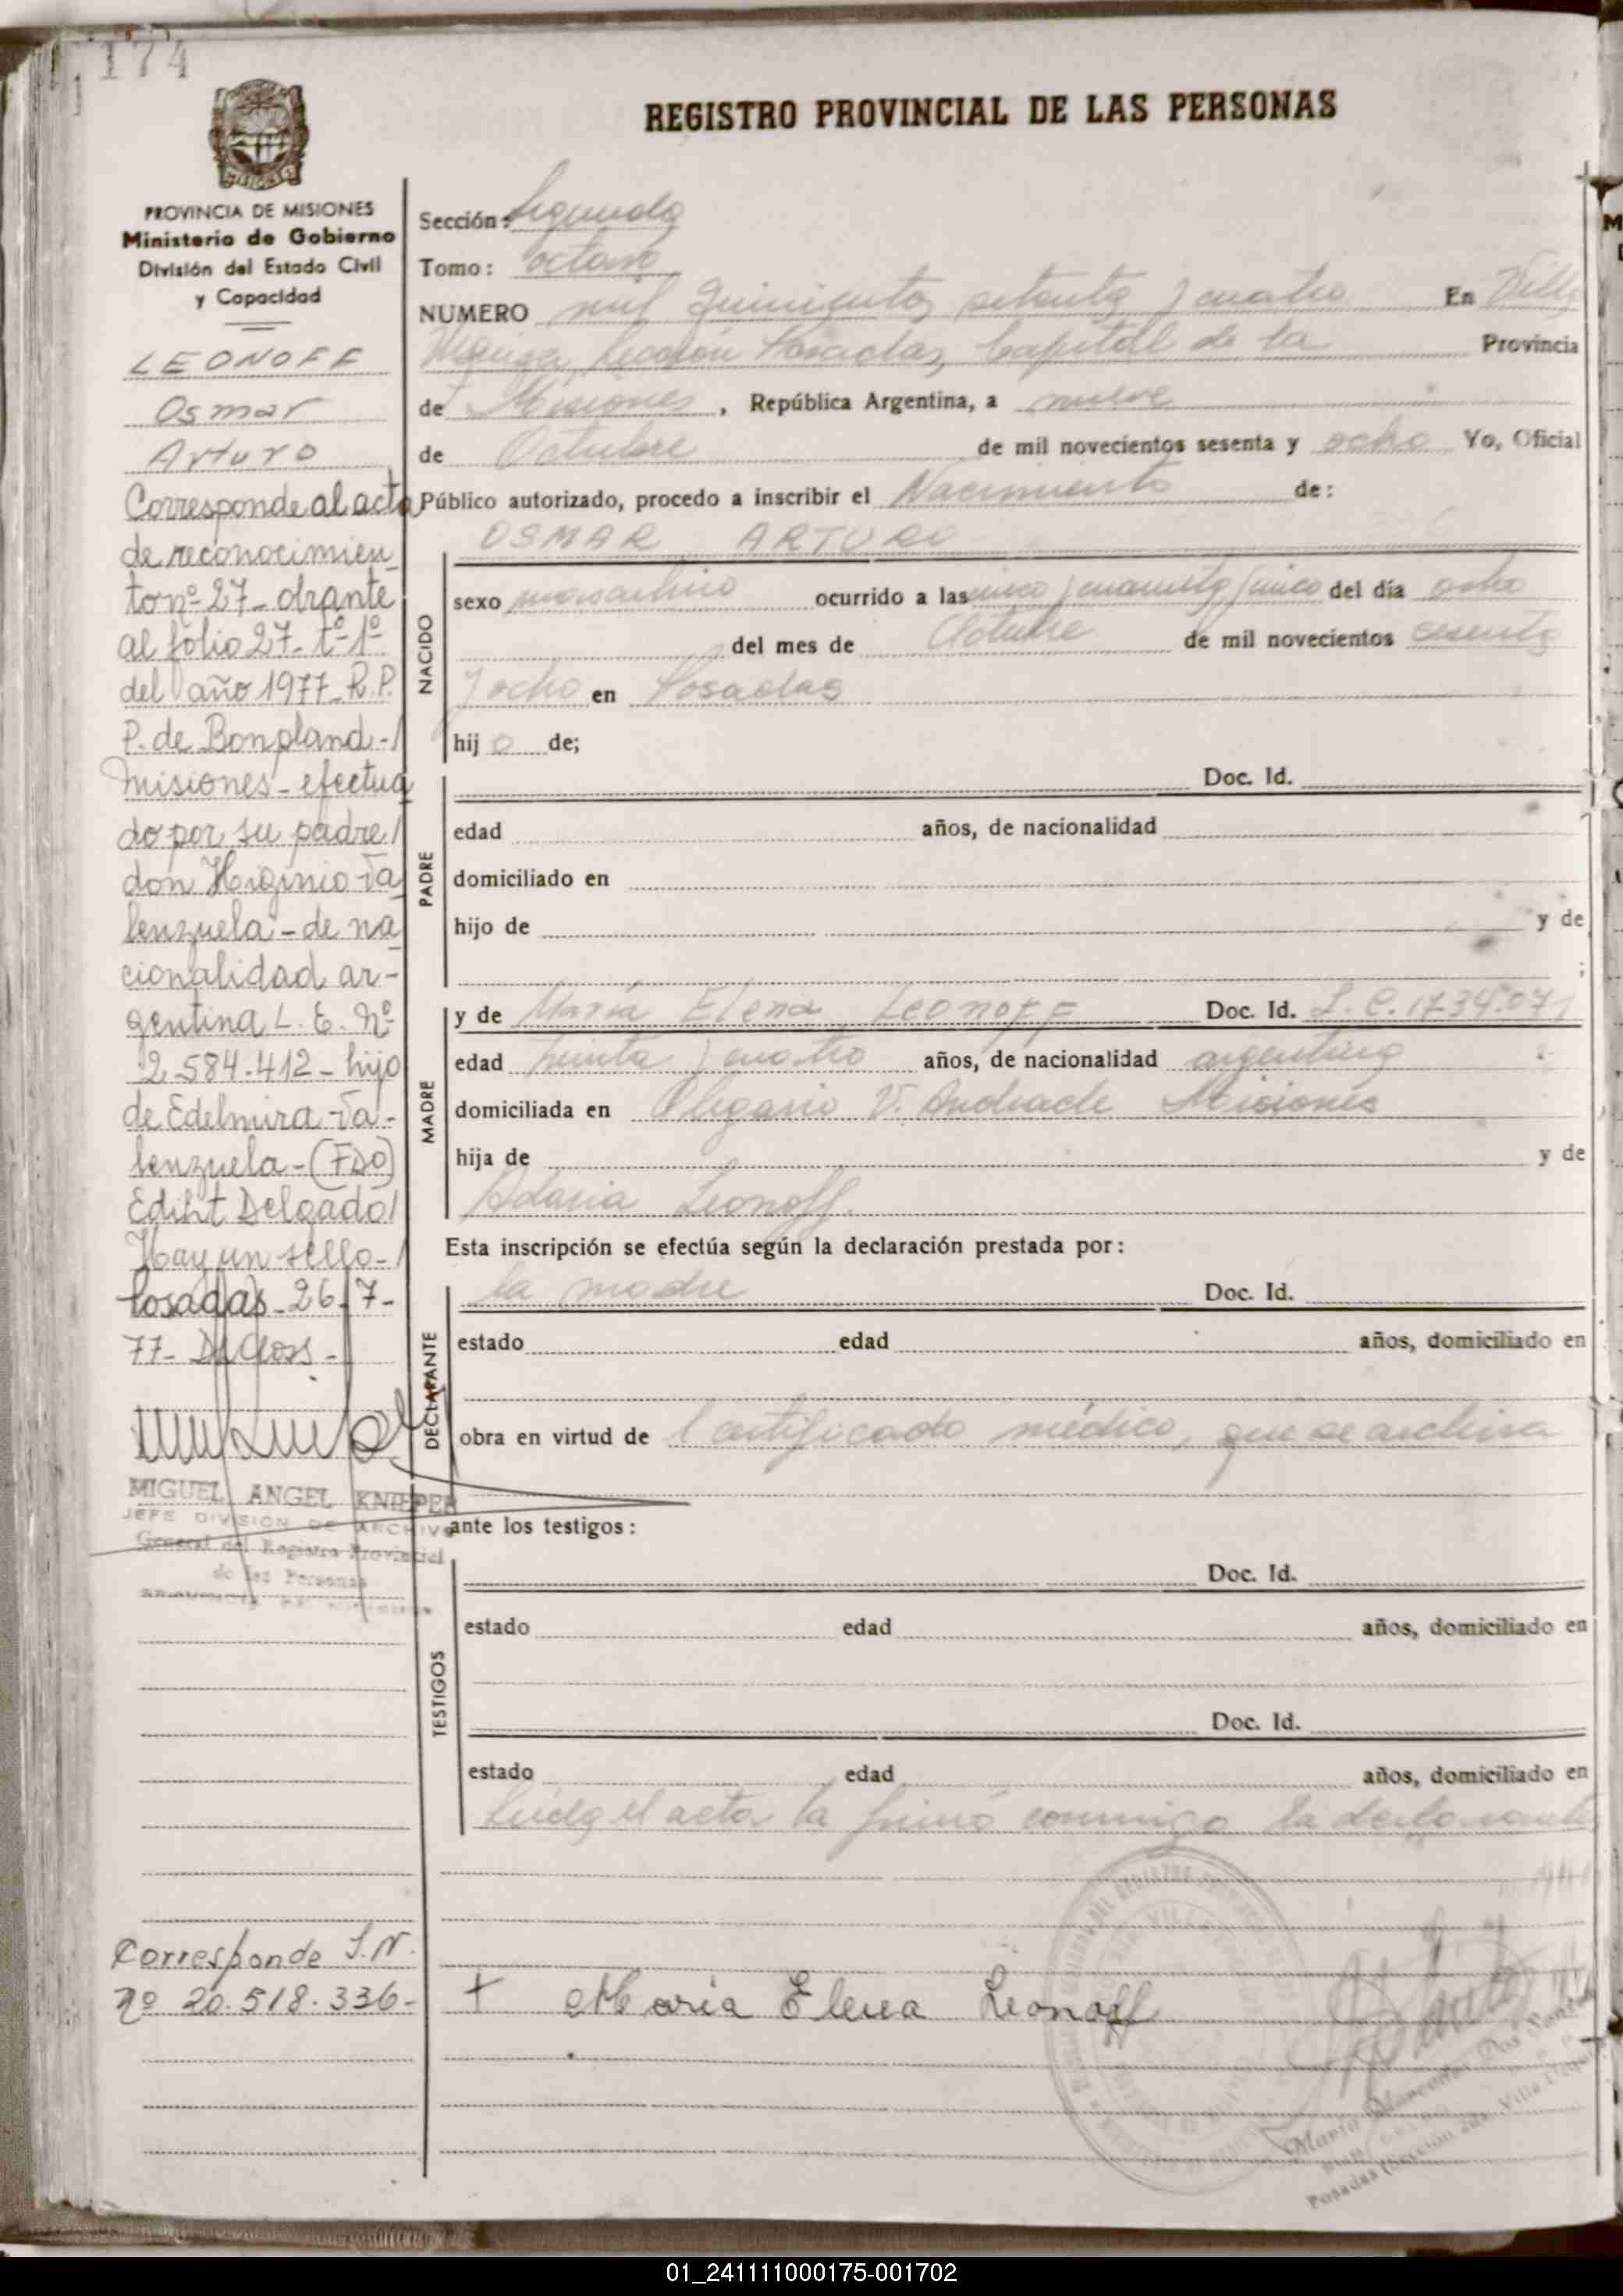 174
REGISTRO PROVINCIAL DE LAS PERSONAS
PROVINCIA DE MISIONES
Ministerio de Gobierno
División del Estado Civil
y Capacidad
LEONOFF
Osmar
Arturo
Corresponde al acta
de reconocimien
to nº 27 - obrante
al folio 27 - tº 1º
del año 1977 - R.P.
P. de Bonpland -/
Misiones - efectua
do por su padre/
don Higinio Va
lenzuela - de na
cionalidad ar-
gentina L. E. Nº
2.584.412 - hijo
de Edelmira Va-
lenzuela - (FDO)
Ediht Delgado/
Hay un sello -/
Posadas - 26 - 7 -
77 -
MIGUEL ANGEL KNIEPER
JEFE DIVISION DE ARCHIVO
General del Registro Provincial
de las Personas
Corresponde I.N.
nº 20.518.336 -
Sección: Segunda
Tomo: octavo
NUMERO mil quinientos setenta y cuatro En Villa
Urquiza, Sección Posadas, Capital de la Provincia
de Misiones, República Argentina, a nueve
de Octubre de mil novecientos sesenta y ocho Yo, Oficial
Público autorizado, procedo a inscribir el Nacimiento de:
OSMAR ARTURO
NACIDO
sexo masculino ocurrido a las cinco y cuarenta y cinco del día ocho
del mes de Octubre de mil novecientos sesenta
y ocho en Posadas
hijo de;
PADRE
Doc. Id.
edad años, de nacionalidad
domiciliado en
hijo de y de
;
MADRE
y de María Elena LEONOFF Doc. Id. L.C. 1.734.071
edad treinta y cuatro años, de nacionalidad argentina
domiciliada en Olegario V. Andrade Misiones
hija de y de
Adaria Leonoff.
Esta inscripción se efectúa según la declaración prestada por:
DECLARANTE
la madre Doc. Id.
estado edad años, domiciliado en
obra en virtud de l certificado médico, que se archiva
ante los testigos:
TESTIGOS
Doc. Id.
estado edad años, domiciliado en
Doc. Id.
estado edad años, domiciliado en
Leída el acta la firmó conmigo la declarante
+ Maria Elena Leonoff
01_241111000175-001702